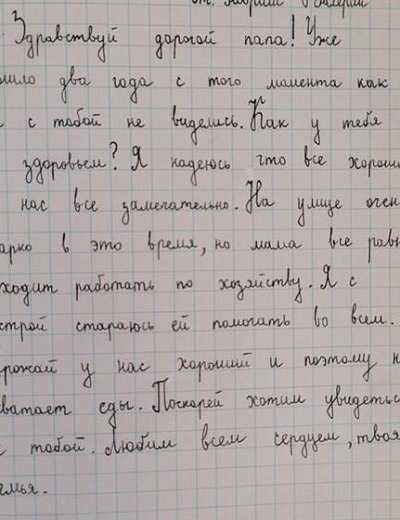 от
Здравствуй дорогой папа! Уже
шло два года с того момента как
с тобой не виделись. Как у тебя
здоровьем? Я надеюсь что все хорош
нас все замечательно. На улице очен
арко в это время, но мама все рав
ходит работать по хозяйству. Я с
строй стараюсь ей помогать во всем.
рожай у нас хороший и поэтому н
ватает еды. Поскорей хотим увидетьс
с тобой. Любим всем сердцем, твоя
емья.